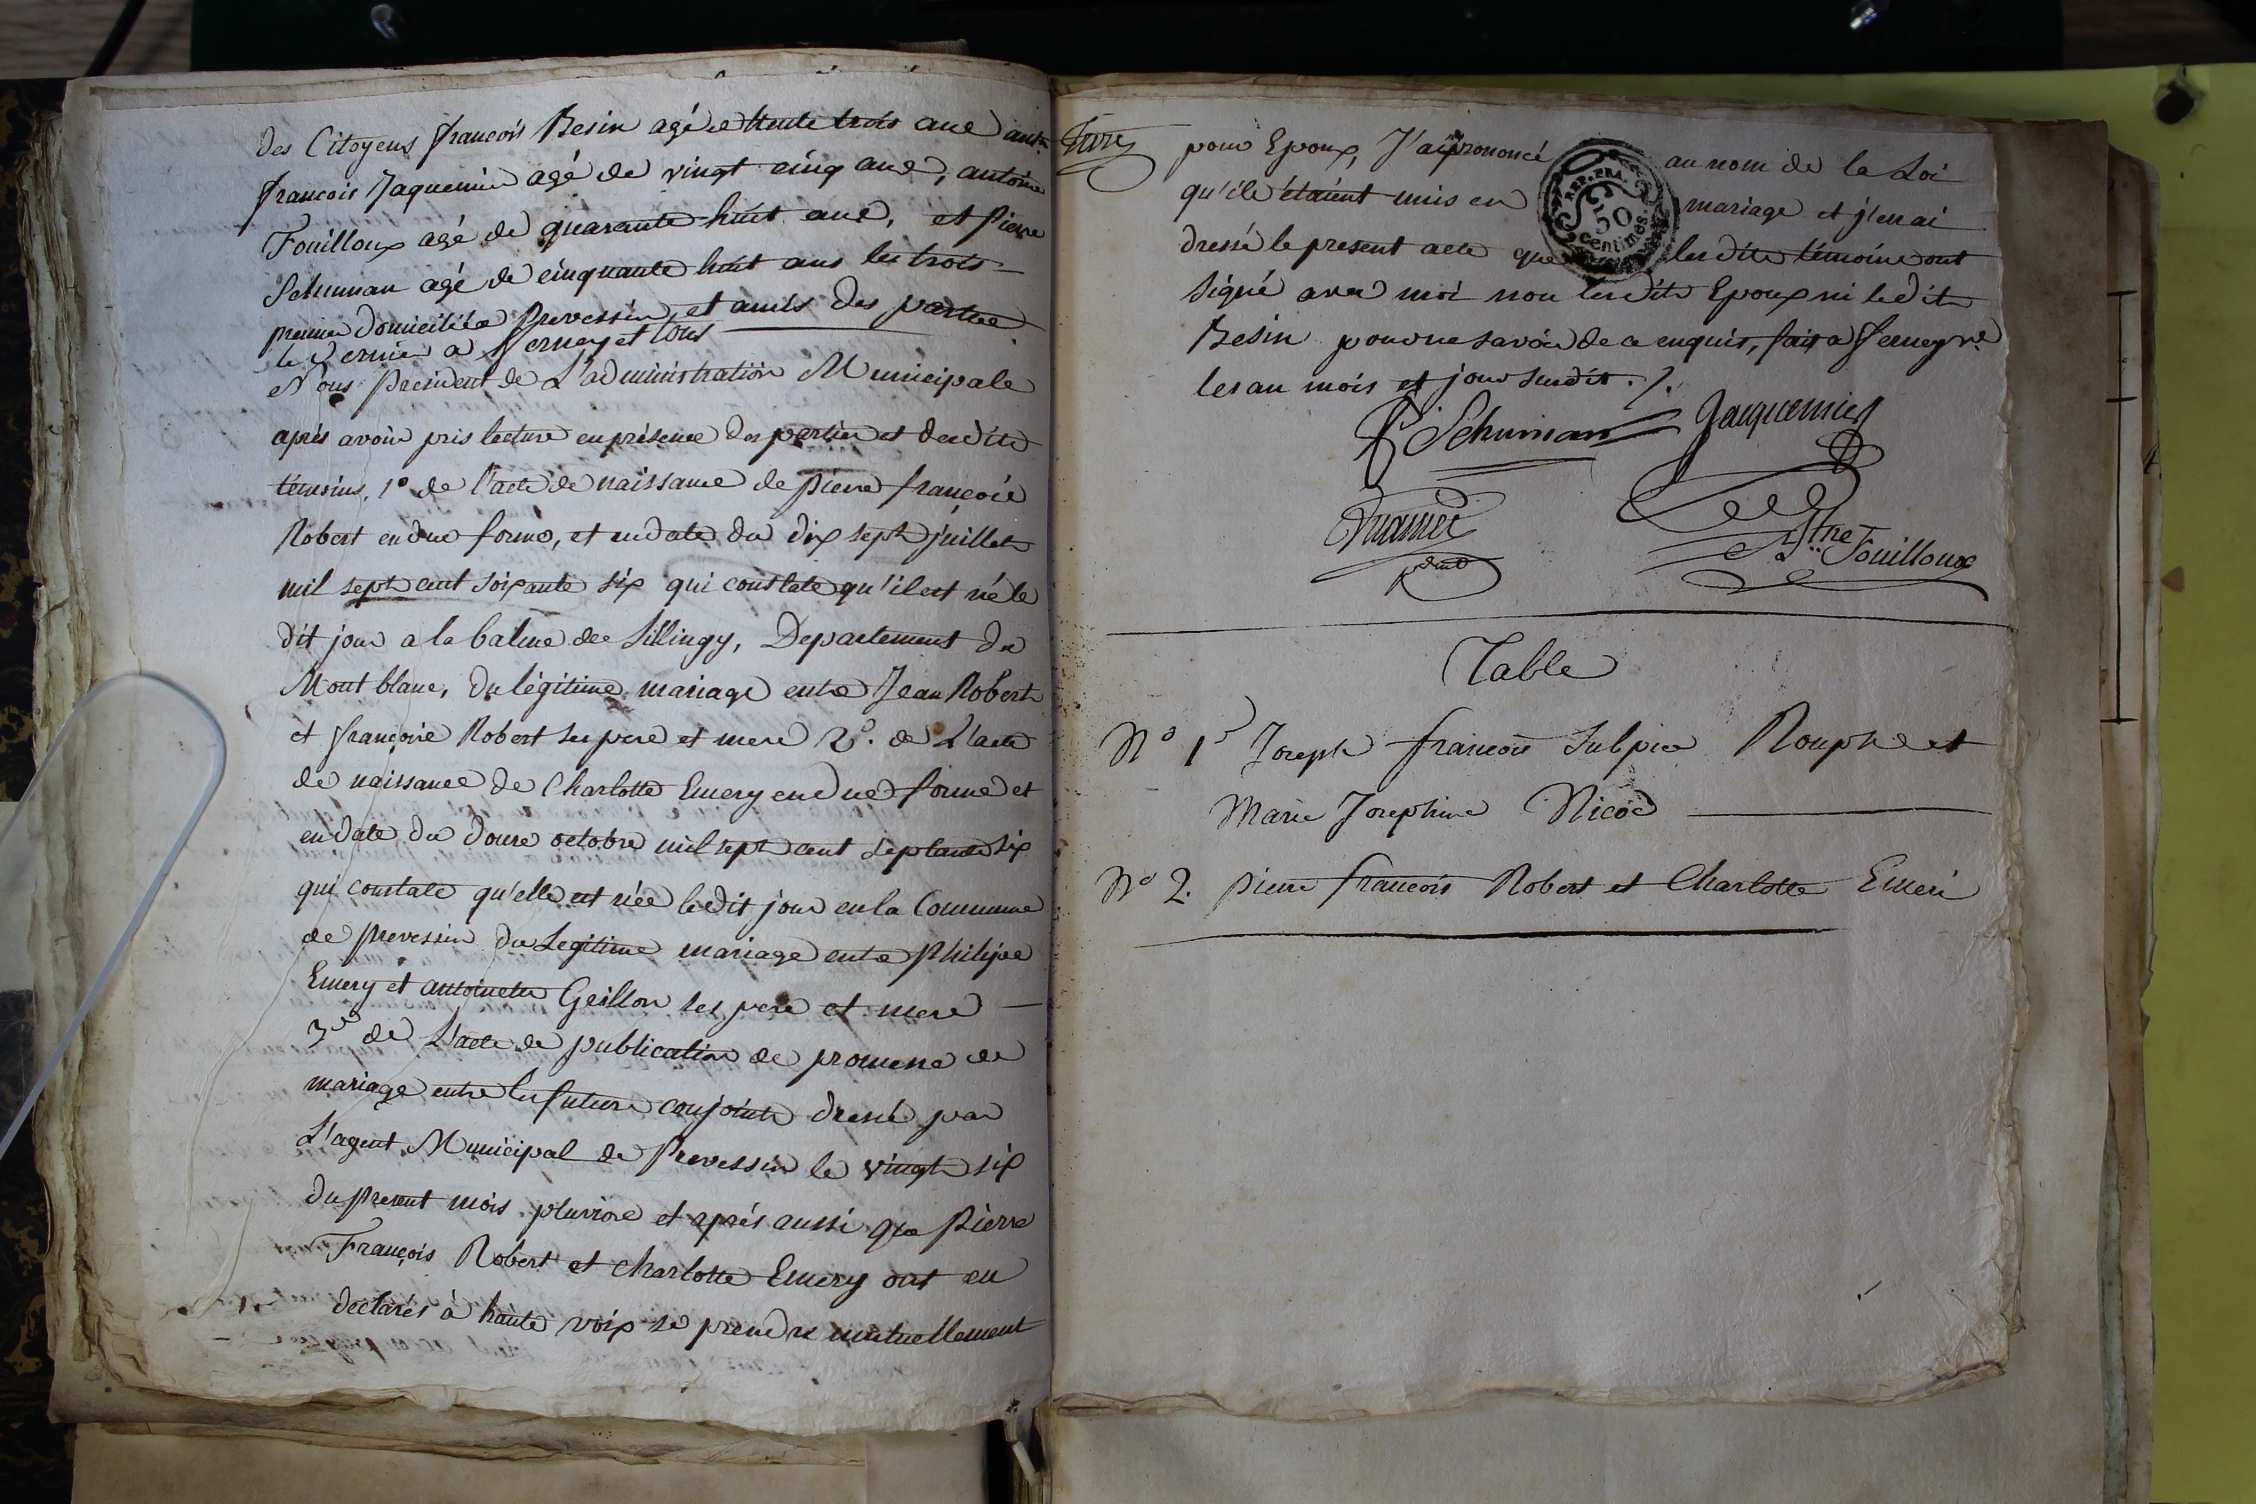 des Citoyens françois Besin agé de trente trois ans
françois Jaquemier agé de vingt cinq ans, antoine
Fouilloux agé de quarante huit ans, et Pierre
Schuman agé de cinquante huit ans les trois
premier domiciliés a Prevessin et amis des parties
le dernier a ferney et tous
Nous president de L'administration Municipale
aprés avoir pris lecture en présence des parties et desdits
témoins, 1º de l'acte de naissance de pierre françois
Robert en due forme, et en date du dix sept juillet
mil sept cent soixante six qui constate qu'il est né le
dit jour a la balme de Sillingy, Departement du
Mont blanc, du légitime mariage entre Jean Robert
et françoise Robert ses pere et mere 2º. de L'acte
de naissance de Charlotte Emery en due forme et
en date du douze octobre mil sept cent septante six
qui constate qu'elle est née ledit jour en la Commune
de prevessin du Legitime mariage entre philipe
Emery et antoinette Geillon ses pere et mere
3º de L'acte de publication de promesse de
mariage entre les futurs conjoints dressé par
L'agent Municipal de Prevessin le vingt six
du present mois pluviose et aprés aussi que Pierre
François Robert et Charlotte Emery ont eu
declarés à haute voix se prendre mutuellement
pour Epoux, J'ai prononcé au nom de la Loi
qu'ils étaient unis en mariage et j'en ai
dressé le present acte que lesdits témoins ont
signé avec moi non lesdits Epoux ni ledit
Besin pour ne savoir de ce enquis, fait a ferney
les an mois et jour susdits.
REP. FRA.
50
centimes.
P. Schuman Jaquemier
Ant.ne Fouilloux
Table
Nº 1 Joseph françois Sulpice Rouph et
Marie Josephine Nicod
Nº 2. pierre françois Robert et Charlotte Emeri